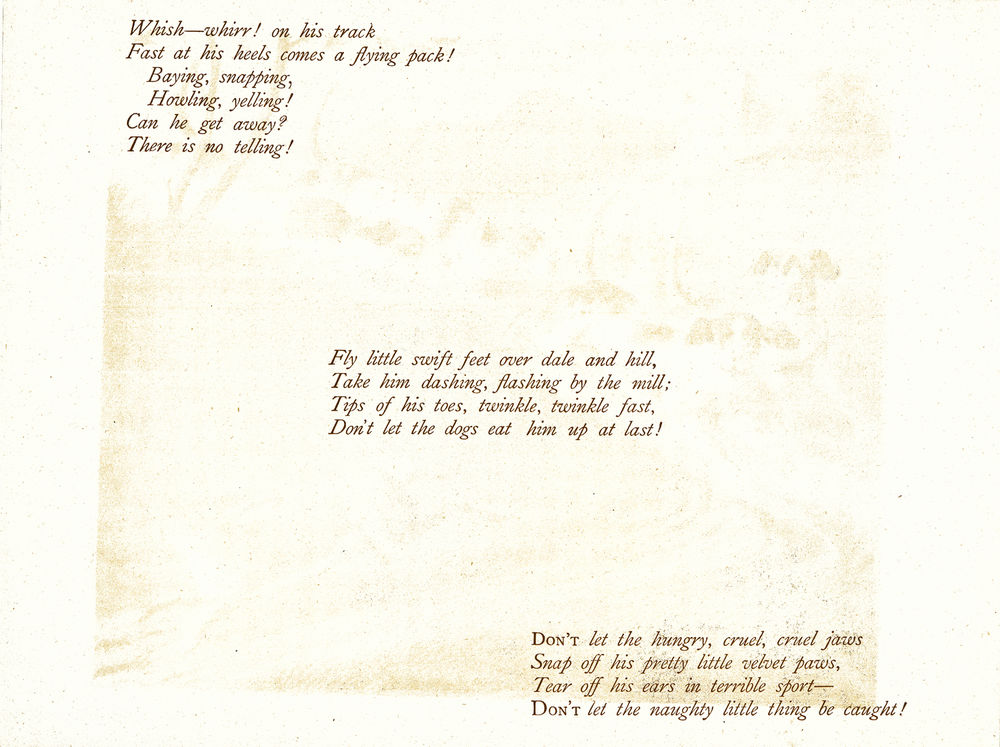 Whish—whirr! on his track
Fast at his heels comes a flying pack!
Baying, snapping,
Howling, yelling!
Can he get away?
There is no telling!
Fly little swift feet over dale and hill,
Take him dashing, flashing by the mill;
Tips of his toes, twinkle, twinkle fast,
Don't let the dogs eat him up at last!
DON'T let the hungry, cruel, cruel jaws
Snap off his pretty little velvet paws,
Tear off his ears in terrible sport—
DON'T let the naughty little thing be caught!